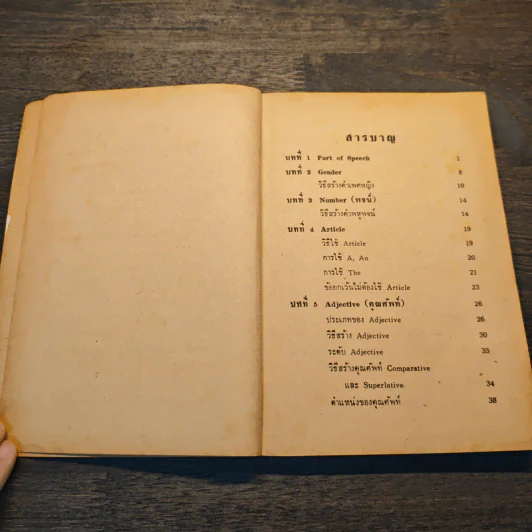 สารบาญ
บทที่ 1 Part of Speech 1
บทที่ 2 Gender 8
วิธีสร้างคำเพศหญิง 10
บทที่ 3 Number (พจน์) 14
วิธีสร้างคำพหูพจน์ 14
บทที่ 4 Article 19
วิธีใช้ Article 19
การใช้ A, An 20
การใช้ The 21
ข้อยกเว้นไม่ต้องใช้ Article 23
บทที่ 5 Adjective (คุณศัพท์) 26
ประเภทของ Adjective 26
วิธีสร้าง Adjective 30
ระดับ Adjective 33
วิธีสร้างคุณศัพท์ Comparative
และ Superlative 34
ตำแหน่งของคุณศัพท์ 38